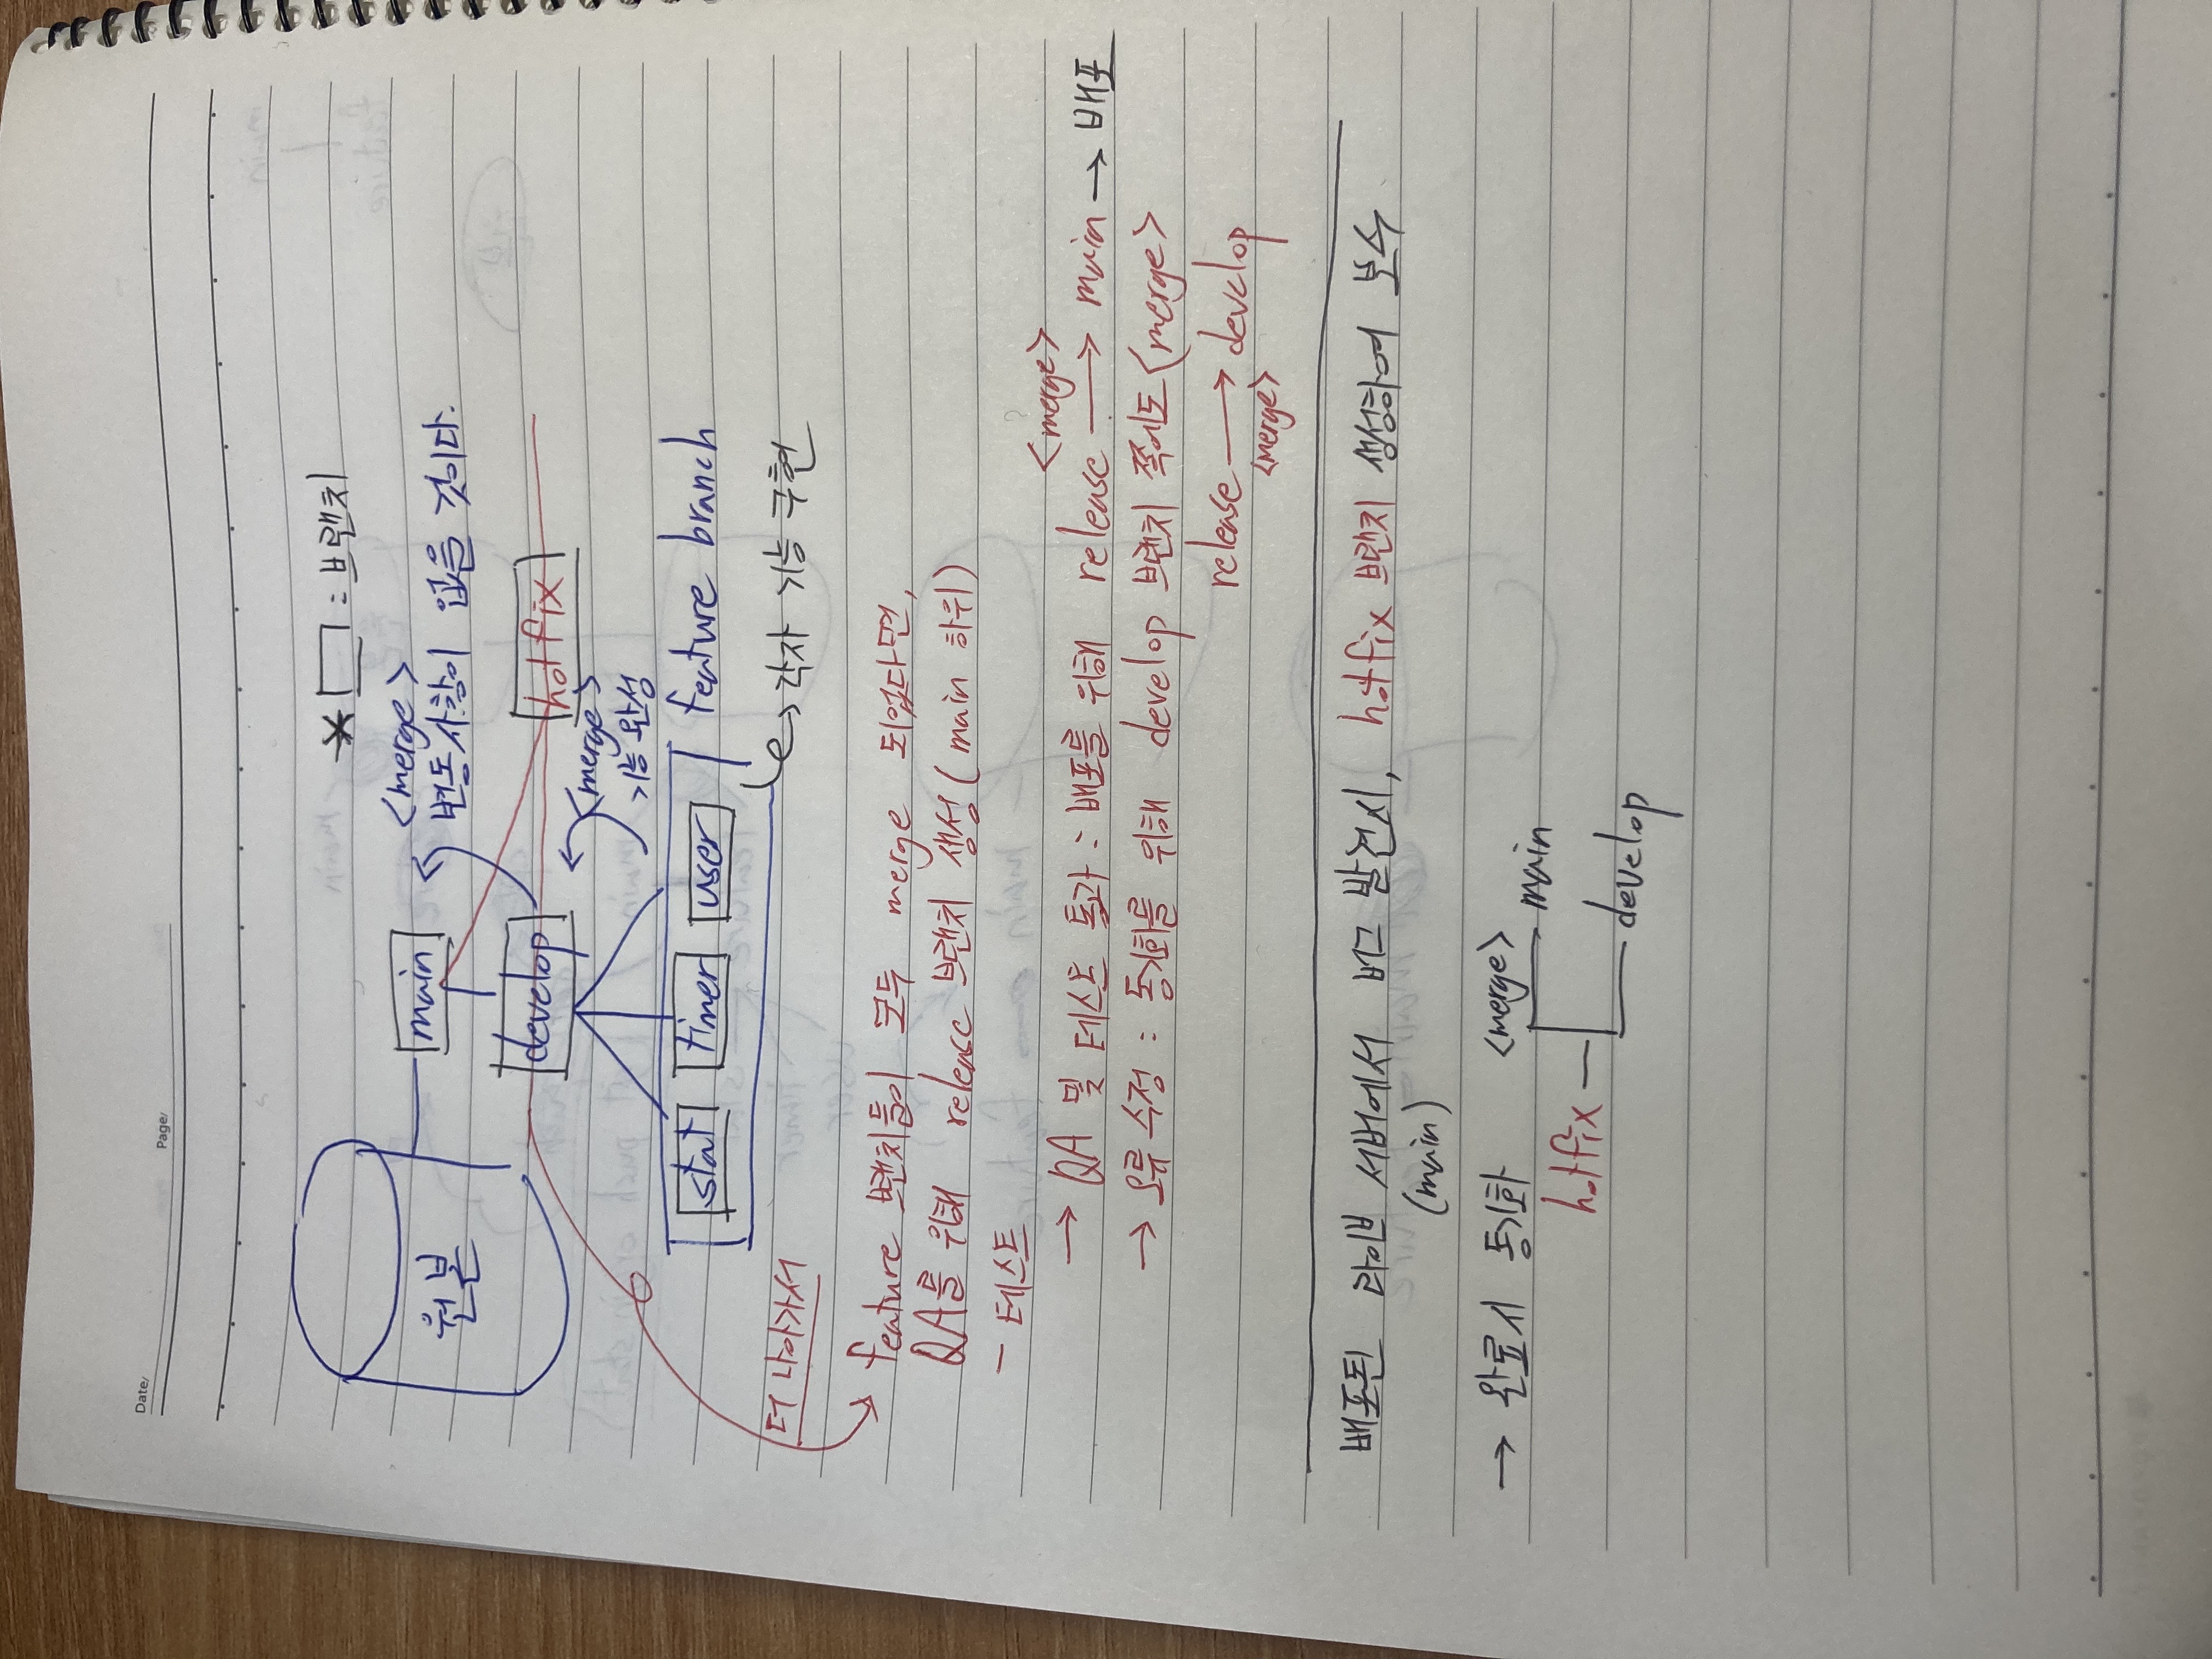 Date/
Page/
* □ : 브랜치
<merge>
원본
main
변동사항이 없을 것이다.
develop
hotfix
<merge>
기능 완성
stat
timer
user
feature branch
더 나아가서
→ 각자 기능 구현
→ feature 브랜치들이 모두 merge 되었다면,
QA를 위해 release 브랜치 생성 (main 하위)
- 테스트
<merge>
→ QA 및 테스트 통과 : 배포를 위해 release → main → 배포
→ 오류 수정 : 동기화를 위해 develop 브랜치 쪽에도 <merge>
release → develop
<merge>
배포된 라이브 서버에서 버그 발견시, hotfix 브랜치 생성하여 보수
(main)
→ 완료시 동기화
<merge>
main
hotfix
develop